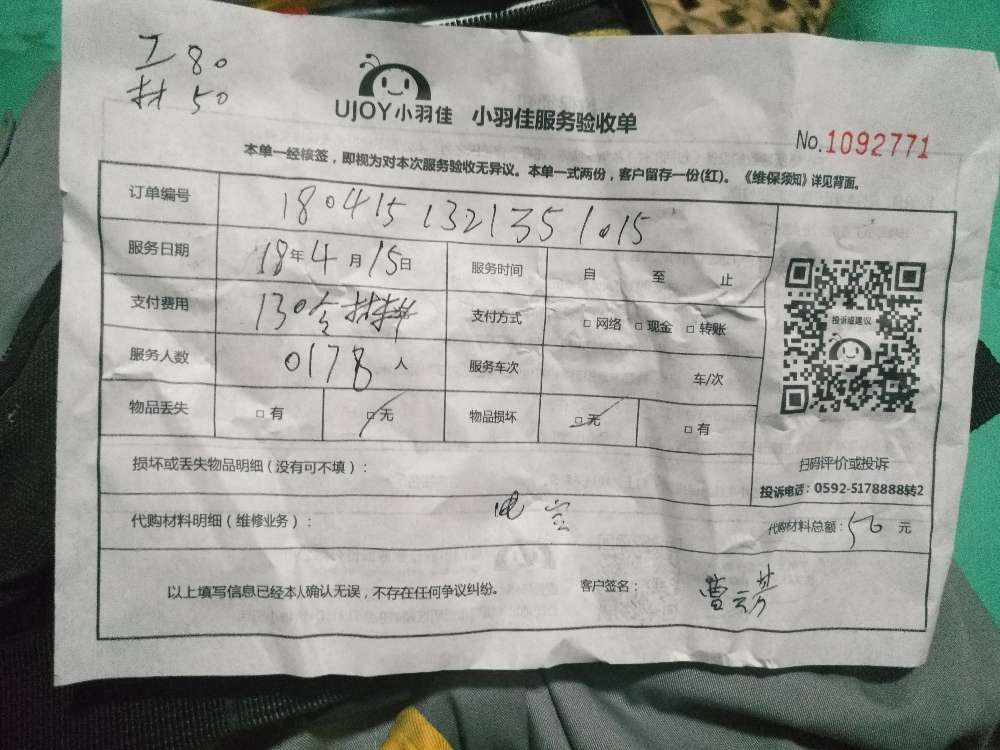 工 80
材 50
UJOY小羽佳 小羽佳服务验收单
No.1092771
本单一经核签，即视为对本次服务验收无异议。本单一式两份，客户留存一份(红)。《维保须知》详见背面。
订单编号 180415 1321351015
服务日期 18年4月15日 服务时间 自 至 止
支付费用 130含材料 支付方式 □网络 □现金 □转账
服务人数 0178人 服务车次 车/次
物品丢失 □有 □无 物品损坏 □无 □有
投诉或建议
扫码评价或投诉
投诉电话：0592-5178888转2
损坏或丢失物品明细（没有可不填）：
代购材料明细（维修业务）： 代购材料总额：50 元
以上填写信息已经本人确认无误，不存在任何争议纠纷。 客户签名：曹云芳